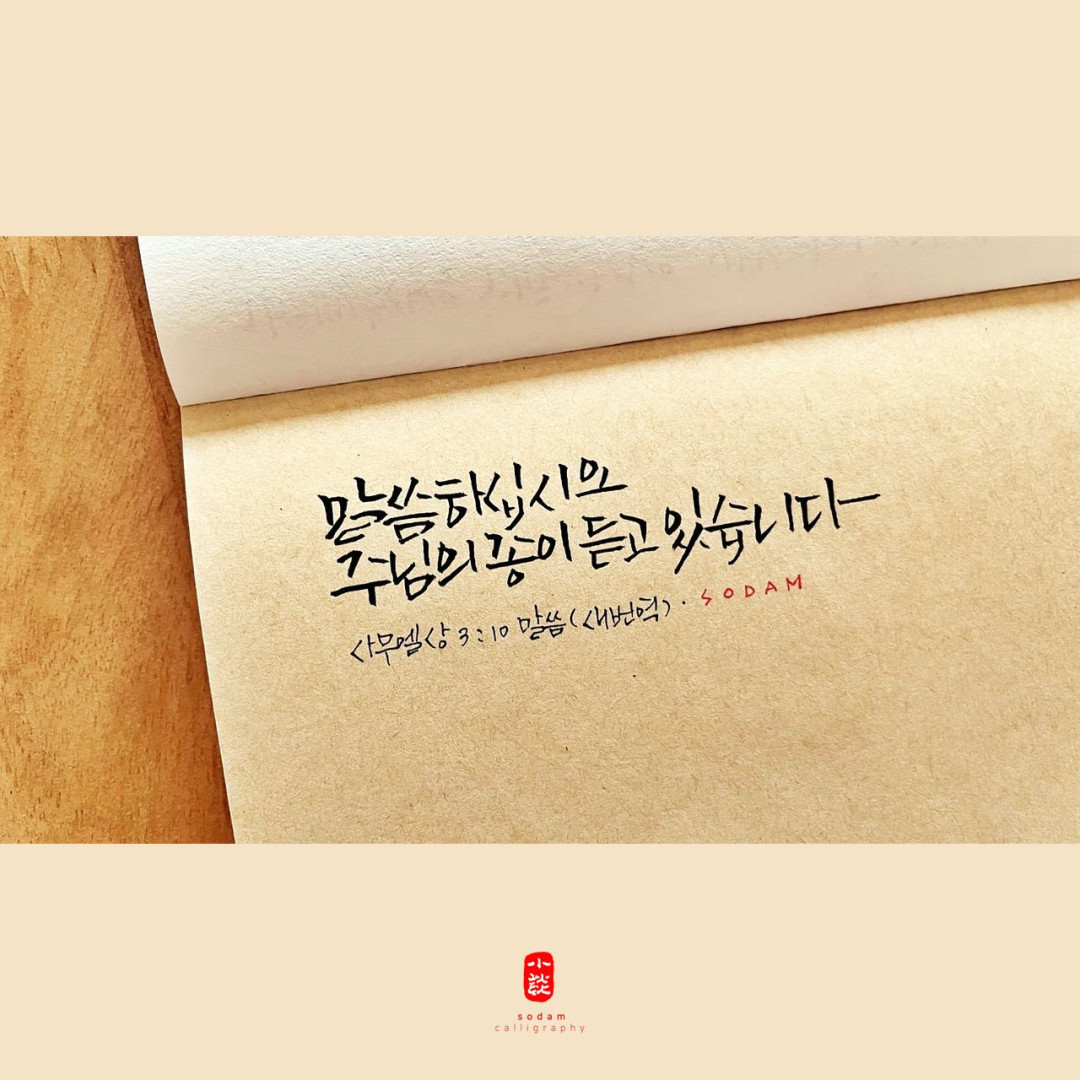 말씀하십시오
주님의 종이 듣고 있습니다
사무엘상 3:10 말씀(새번역). SODAM
小談
sodam
calligraphy